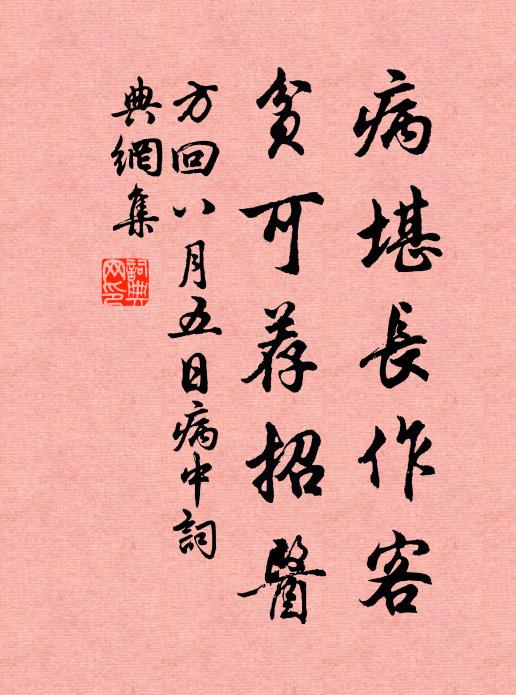 病堪長作客
貧可荐招醫
方回八月五日病中詞
典網集
詞典
网印